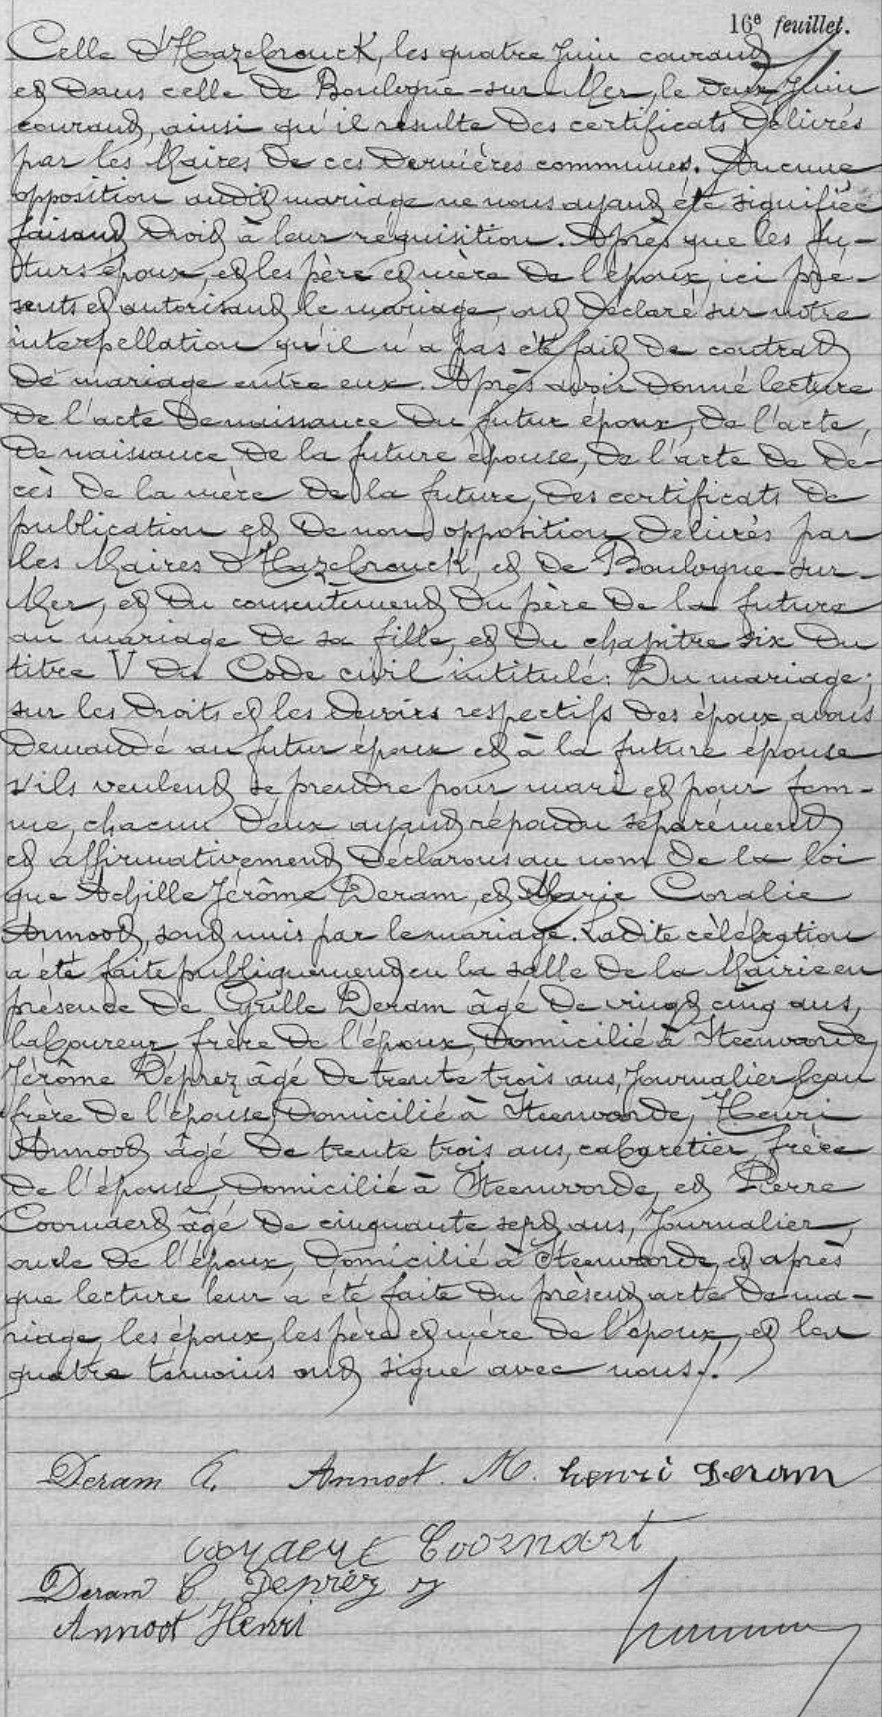 16e feuillet.
Celle d'Hazebrouck, les quatre Juin courant
et dans celle de Boulogne-sur-Mer, le deux Juin
courant, ainsi qu'il résulte des certificats délivrés
par les Maires de ces dernières communes. Aucune
opposition audit mariage ne nous ayant été signifiée
faisant droit à leur réquisition. Après que les fu-
turs époux, et les père et mère de l'époux, ici pré-
sents et autorisant le mariage, ont déclaré sur notre
interpellation qu'il n'a pas été fait de contrat
de mariage entre eux. Après avoir donné lecture
de l'acte de naissance du futur époux, de l'acte,
de naissance de la future épouse, de l'acte de dé-
cès de la mère de la future, des certificats de
publication et de non opposition délivrés par
les Maires d'Hazebrouck, et de Boulogne-sur-
Mer, et du consentement du père de la future
au mariage de sa fille, et du chapitre six du
titre V du Code civil intitulé: Du mariage;
sur les droits et les devoirs respectifs des époux, avons
demandé au futur époux et à la future épouse
s'ils veulent se prendre pour mari et pour fem-
me, chacun d'eux ayant répondu séparément
et affirmativement, déclarons au nom de la loi
que Achille Jérôme Deram, et Marie Coralie
Annoot, sont unis par le mariage. Ladite célébration
a été faite publiquement en la salle de la Mairie en
présence de Cyrille Deram âgé de vingt cinq ans,
laboureur, frère de l'époux, domicilié à Steenvoorde,
Jérôme Deprez âgé de trente trois ans, Journalier beau
frère de l'épouse, domicilié à Steenvoorde, Henri
Annoot âgé de trente trois ans, cabaretier, frère
de l'épouse, domicilié à Steenvoorde, et Pierre
Coornaert âgé de cinquante sept ans, Journalier,
oncle de l'époux, domicilié à Steenvoorde, et après
que lecture leur a été faite du présent acte de ma-
riage, les époux, les père et mère de l'époux, et les
quatre témoins ont signé avec nous.
Deram A. Annoot. M. henri Deram
Coornart
Deram C. Deprez J
Annoot Henri